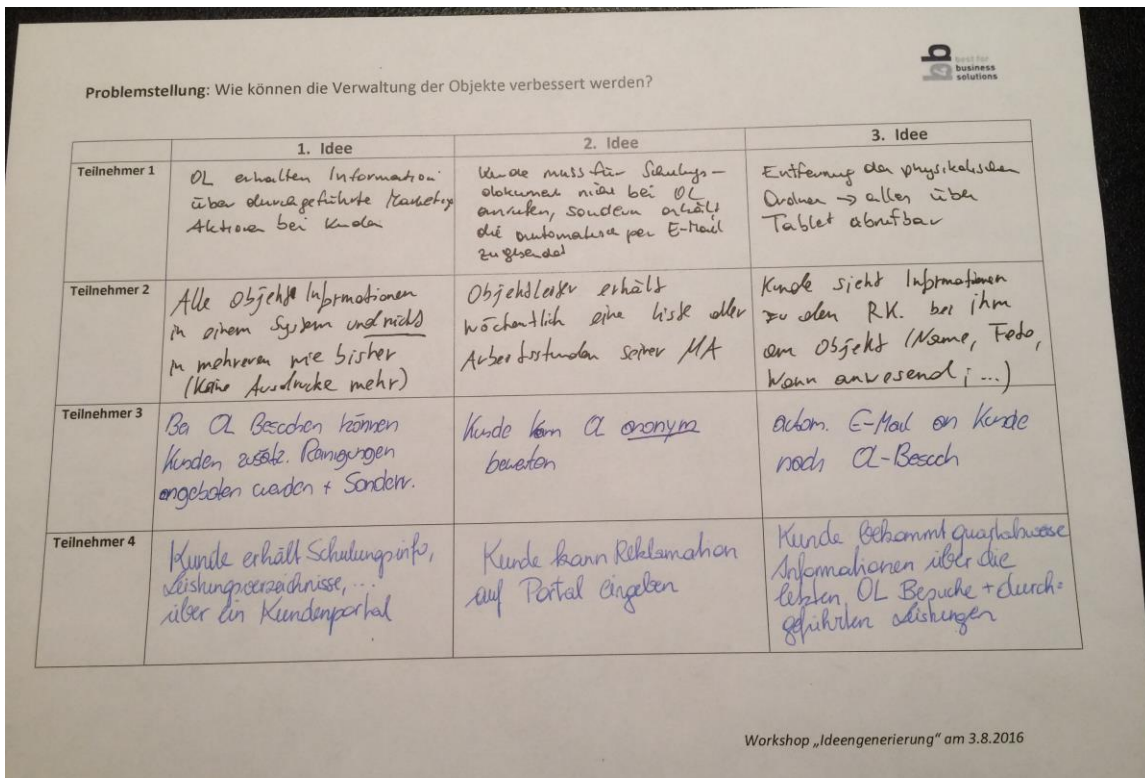 best for
business
solutions
Problemstellung: Wie können die Verwaltung der Objekte verbessert werden?
1. Idee
2. Idee
3. Idee
Teilnehmer 1
OL erhalten Information
über durchgeführte Marketing
Aktionen bei Kunden
Kunde muss für Schulungs-
dokument nicht bei OL
anrufen, sondern erhält
die automatisch per E-Mail
zugesendet
Entfernung der physikalischen
Ordner → alles über
Tablet abrufbar
Teilnehmer 2
Alle Objekt Informationen
in einem System und nicht
in mehreren wie bisher
(Keine Ausdrucke mehr)
Objektleiter erhält
wöchentlich eine Liste aller
Arbeitsstunden seiner MA
Kunde sieht Informationen
zu den RK. bei ihm
am Objekt (Name, Foto,
Wann anwesend; ...)
Teilnehmer 3
Bei OL Besuchen können
Kunden zusätz. Reinigungen
angeboten werden + Sonderr.
Kunde kann OL anonym
bewerten
autom. E-Mail an Kunde
nach OL-Besuch
Teilnehmer 4
Kunde erhält Schulungsinfo,
Leistungsverzeichnisse,...
über ein Kundenportal
Kunde kann Reklamation
auf Portal eingeben
Kunde bekommt quartalsweise
Informationen über die
letzten OL Besuche + durch-
geführten Leistungen
Workshop „Ideengenerierung“ am 3.8.2016